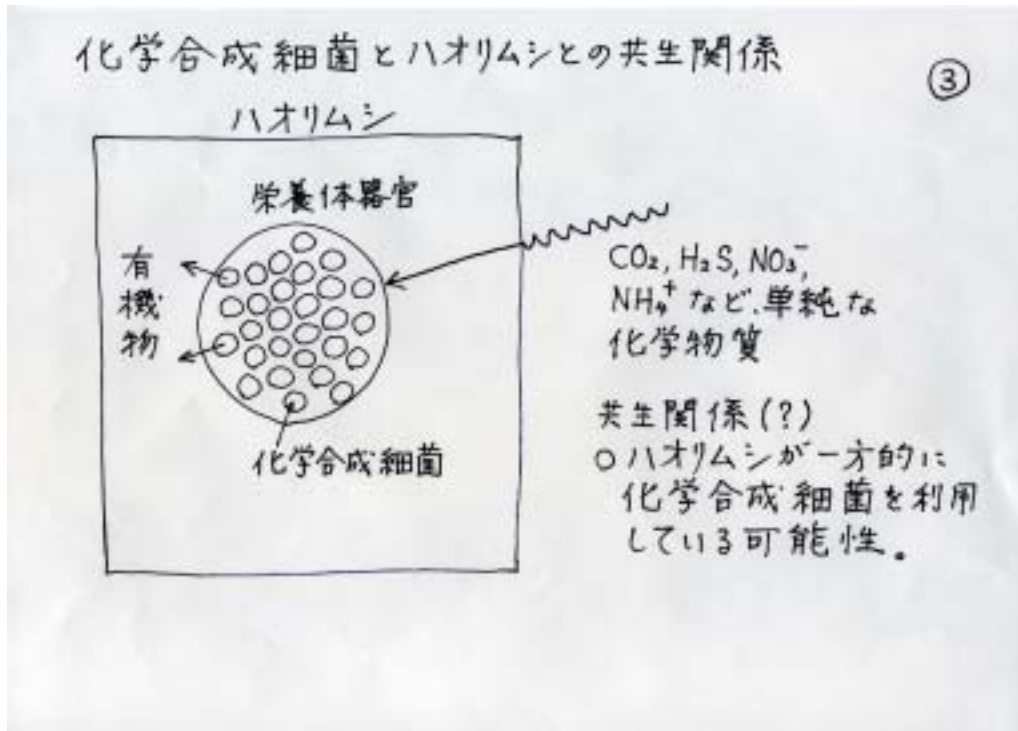 化学合成細菌とハオリムシとの共生関係
③
ハオリムシ
栄養体器官
有機物
化学合成細菌
CO₂, H₂S, NO₃⁻,
NH₄⁺ など、単純な
化学物質
共生関係(?)
○ ハオリムシが一方的に
化学合成細菌を利用
している可能性。